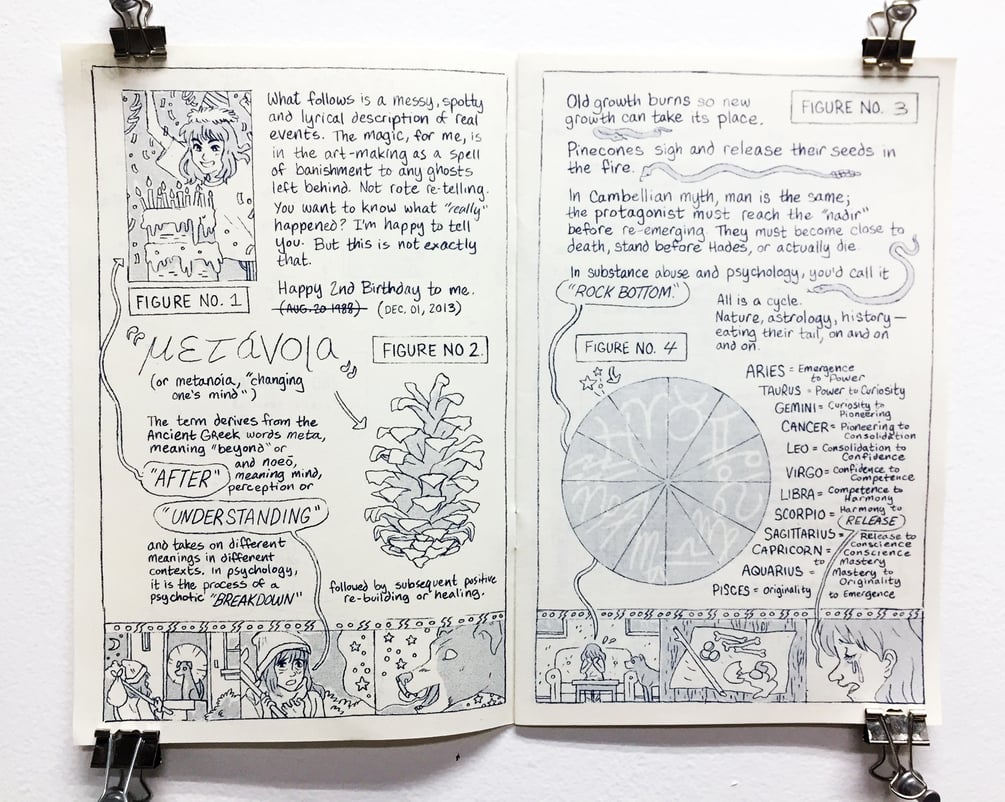 What follows is a messy, spotty
and lyrical description of real
events. The magic, for me, is
in the art-making as a spell
of banishment to any ghosts
left behind. Not rote re-telling.
You want to know what "really"
happened? I'm happy to tell
you. But this is not exactly
that.
FIGURE NO. 1
Happy 2nd Birthday to me.
(AUG. 20 1988) (DEC. 01, 2013)
μετάνοια
FIGURE NO 2.
(or metanoia, "changing
one's mind")
The term derives from the
Ancient Greek words meta,
meaning "beyond" or
"AFTER" and noeō,
meaning mind,
perception or
"UNDERSTANDING"
and takes on different
meanings in different
contexts. In psychology,
it is the process of a
psychotic "BREAKDOWN"
followed by subsequent positive
re-building or healing.
Old growth burns so new
growth can take its place.
FIGURE NO. 3
Pinecones sigh and release their seeds in
the fire.
In Cambellian myth, man is the same;
the protagonist must reach the "nadir"
before re-emerging. They must become close to
death, stand before Hades, or actually die.
In substance abuse and psychology, you'd call it
"ROCK BOTTOM."
All is a cycle.
Nature, astrology, history—
eating their tail, on and on
and on.
FIGURE NO. 4
ARIES = Emergence
to Power
TAURUS = Power to Curiosity
GEMINI = Curiosity to
Pioneering
CANCER = Pioneering to
Consolidation
LEO = Consolidation to
Confidence
VIRGO = Confidence to
Competence
LIBRA = Competence to
Harmony
SCORPIO = Harmony to
RELEASE
SAGITTARIUS = Release to
Conscience
CAPRICORN = Conscience
to Mastery
AQUARIUS = Mastery to
Originality
PISCES = Originality
to Emergence